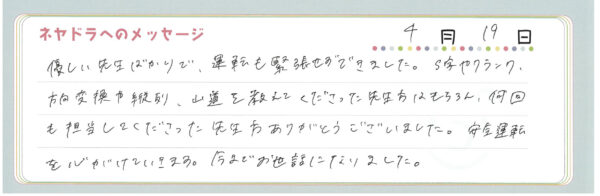 ネヤドラへのメッセージ 4月19日
優しい先生ばかりで、運転も緊張せずできました。S字やクランク、
方向変換や縦列、山道を教えてくださった先生方はもちろん、何回
も担当してくださった先生方ありがとうございました。安全運転
を心がけていきます。今までお世話になりました。